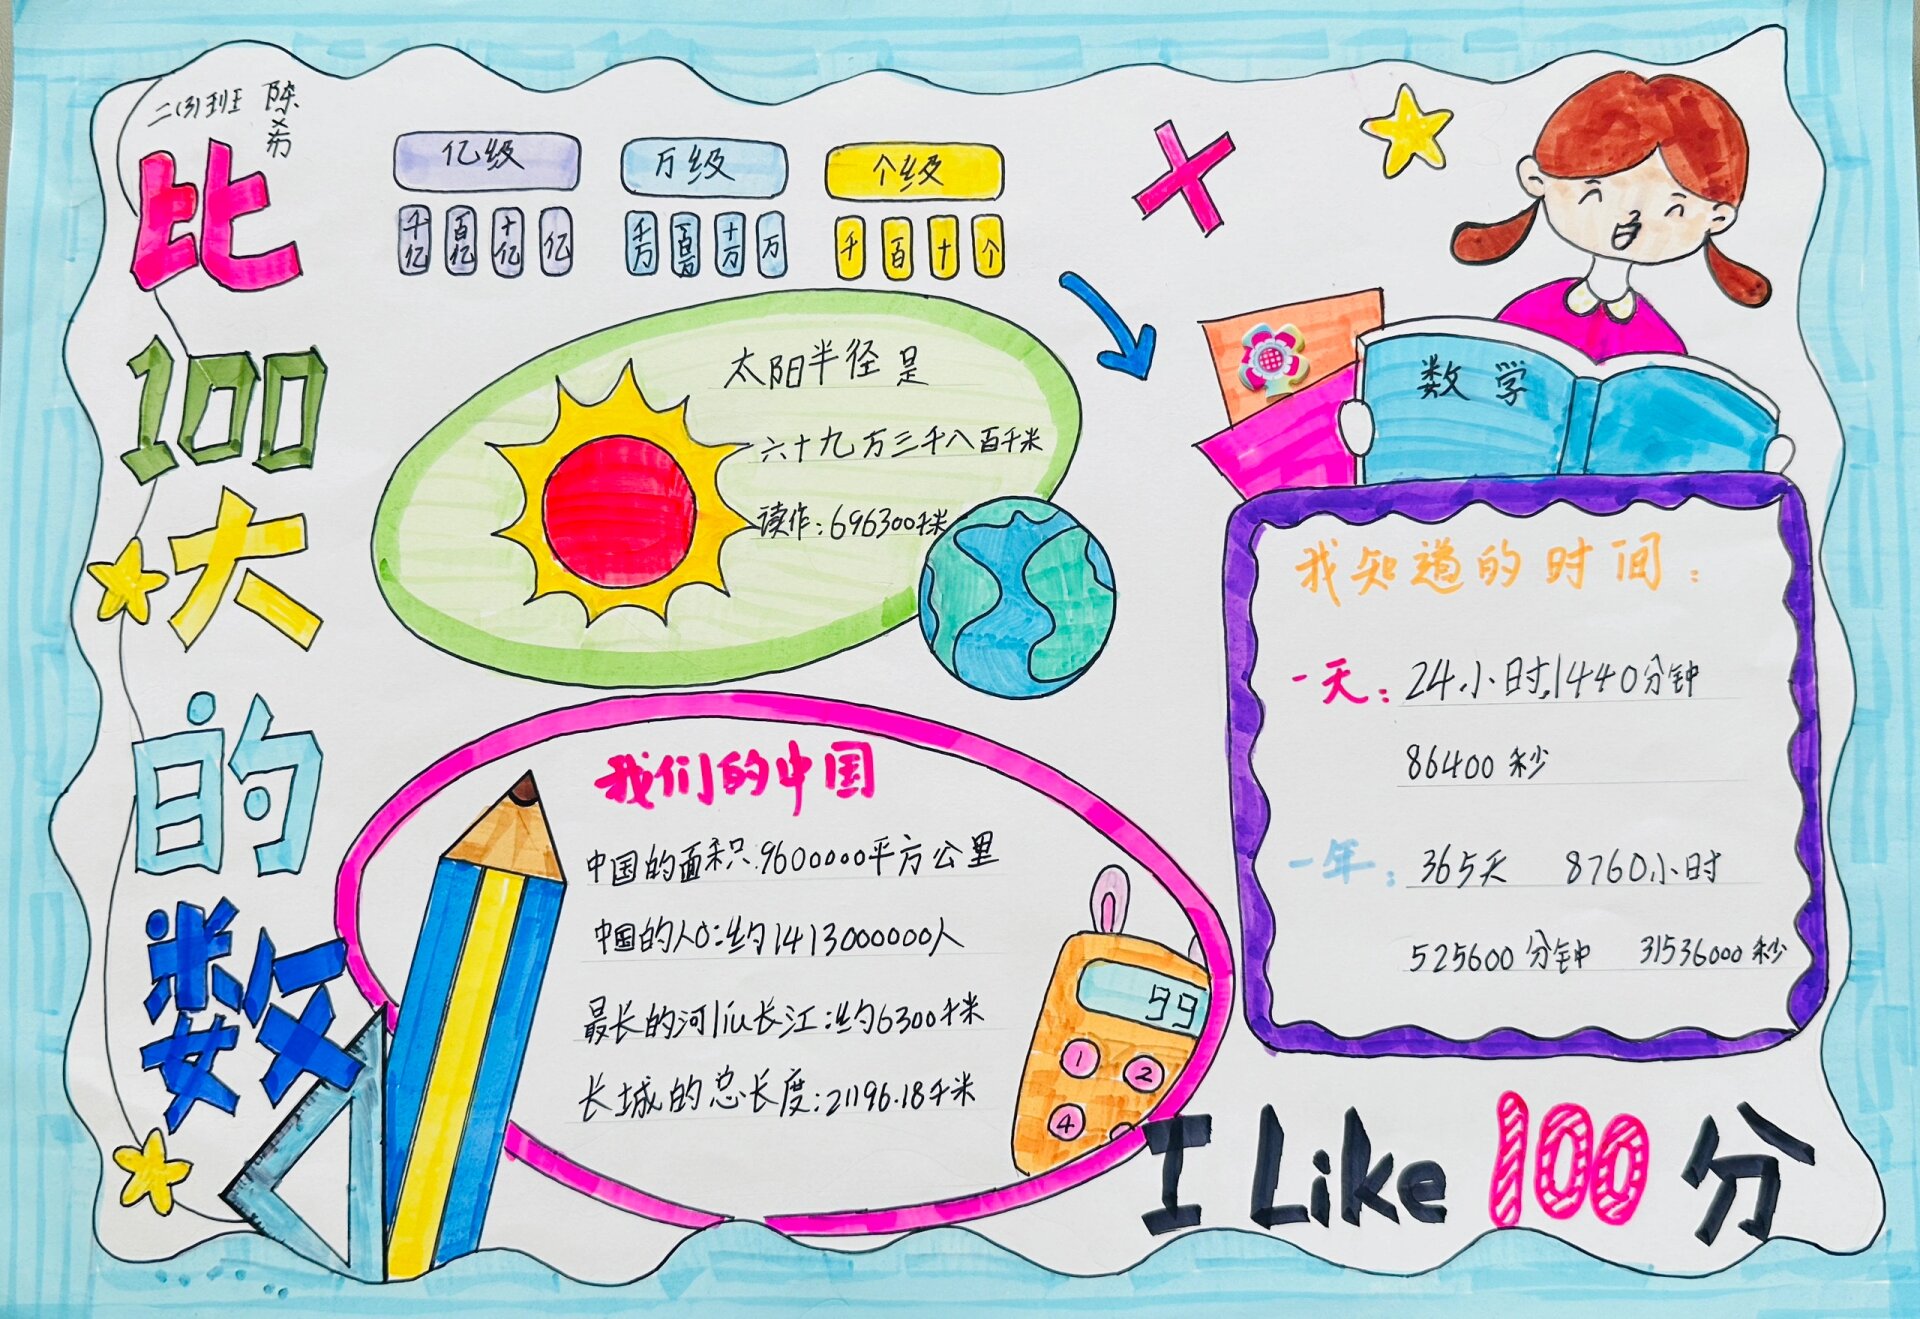 二(3)班 陈
希
比
100
大
的
数
亿级 万级 个级
千亿 百亿 十亿 亿 千万 百万 十万 万 千 百 十 个
太阳半径是
六十九万三千八百千米
读作：696300千米
数学
我们的中国
中国的面积：9600000平方公里
中国的人口：约1413000000人
最长的河liú长江：约6300千米
长城的总长度：21196.18千米
99
1 2
4
我知道的时间：
一天：24小时,1440分钟
86400秒
一年：365天 8760小时
525600分钟 31536000秒
I Like 100分